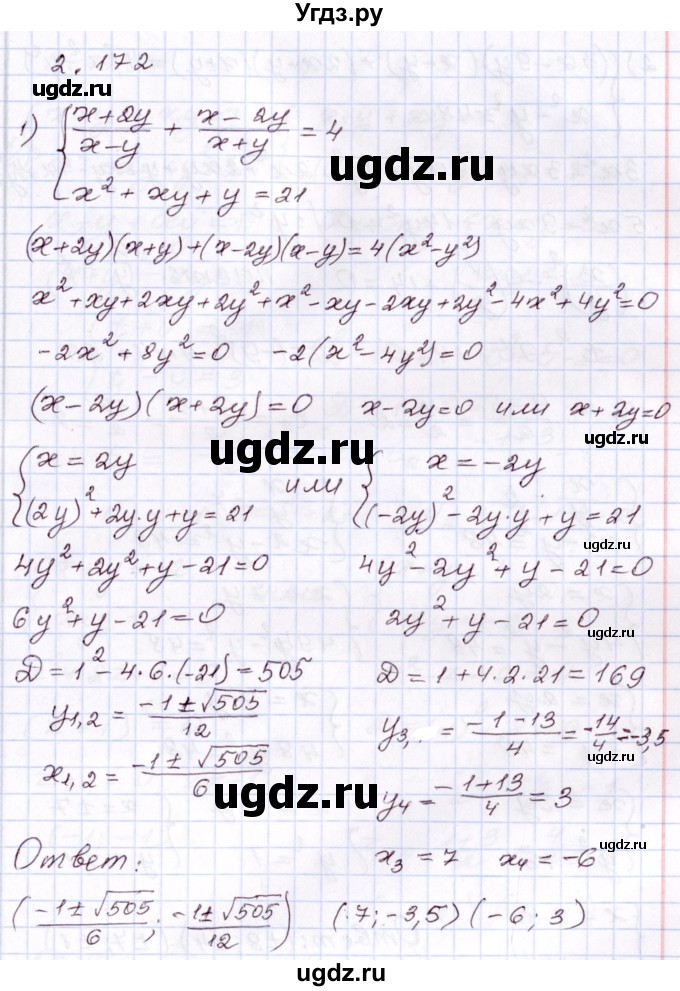 Угдз.ру
2.172
gdz.ru
1) { (x+2y)/(x-y) + (x-2y)/(x+y) = 4
ugdz.ru
x² + xy + y = 21
(x+2y)(x+y)+(x-2y)(x-y)=4(x²-y²)
x²+xy+2xy+2y²+x²-xy-2xy+2y²-4x²+4y²=0
-2x²+8y²=0 -2(x²-4y²)=0
ugdz.ru
(x-2y)(x+2y)=0 x-2y=0 или x+2y=0
ugdz.ru
ugdz.ru
{ x=2y или { x=-2y
(2y)²+2y·y+y=21 (-2y)²-2y·y+y=21
ugdz.ru
4y²+2y²+y-21=0 4y²-2y²+y-21=0
6y²+y-21=0 2y²+y-21=0
ugdz.ru
D=1²-4·6·(-21)=505 D=1+4·2·21=169
y1,2=(-1±√505)/12 y3,=(-1-13)/4=-14/4=-3,5
ugdz.ru
ugdz.ru
x1,2=(-1±√505)/6 y4=(-1+13)/4=3
ugdz.ru
Ответ: x3=7 x4=-6
ugdz.ru
((-1±√505)/6; (-1±√505)/12) (7;-3,5)(-6;3)
ugdz.ru
ugdz.ru